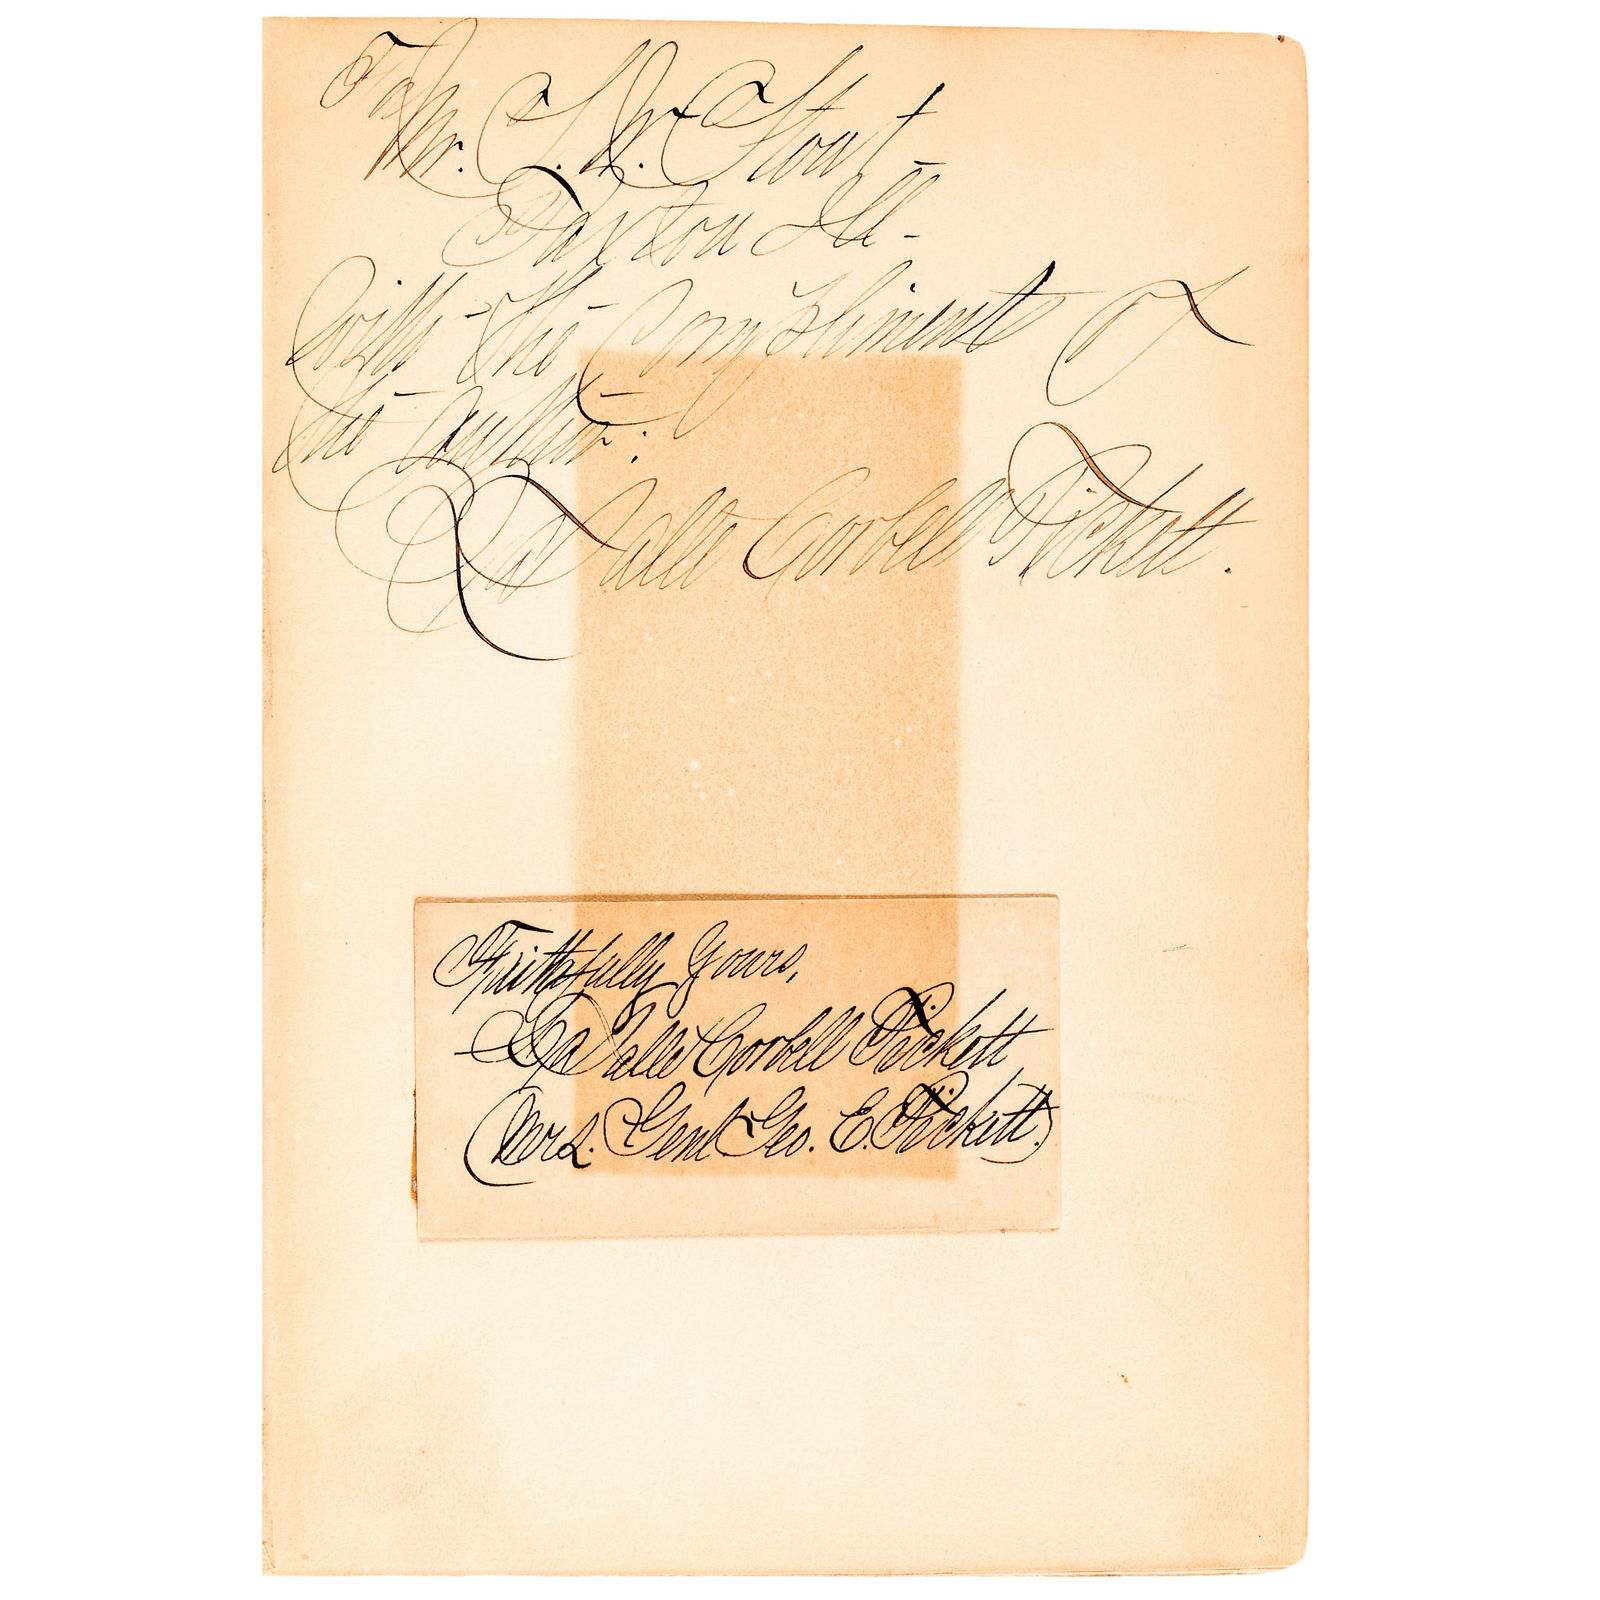 To
Mr. S. W. Stout -
Paxton Ill -
With the Compliments of
the author.
LaSalle Corbell Pickett.
Faithfully Yours,
LaSalle Corbell Pickett
(Mrs. Genl Geo. E. Pickett.)